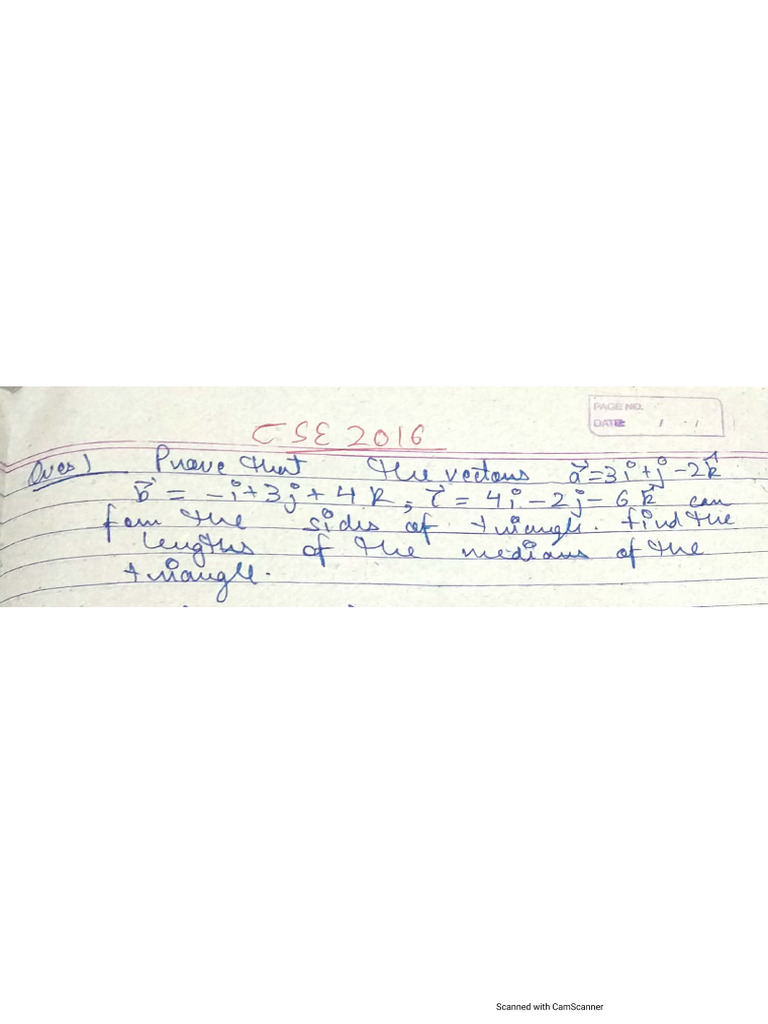 PAGE NO.
DATE:
CSE 2016
Ques 1 Prove that the vectors a⃗ = 3i + j - 2k̂
b⃗ = -i + 3j + 4k, c⃗ = 4i - 2j - 6k⃗ can
form the sides of triangle. find the
lengths of the medians of the
triangle.
Scanned with CamScanner